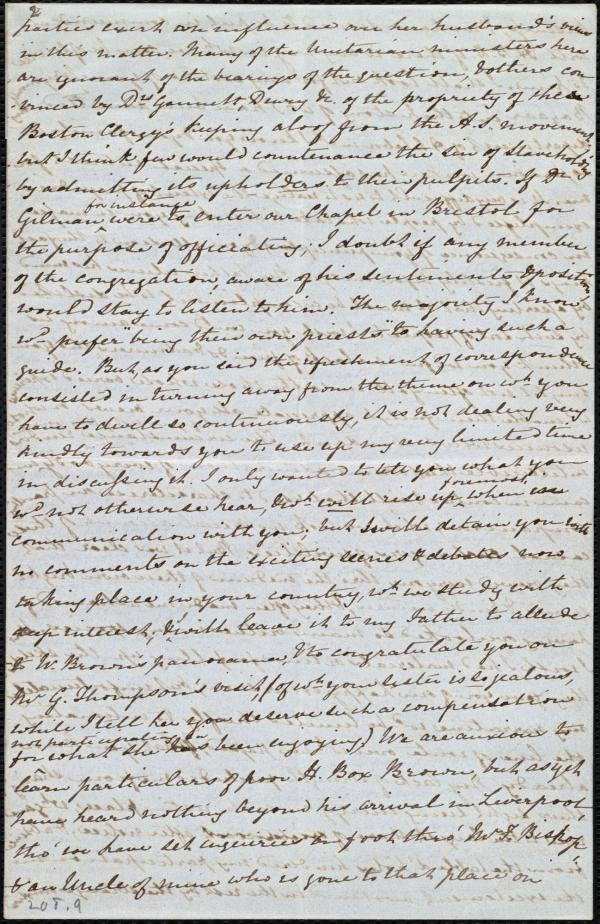 2
parties exert an influence over her husband's views
in this matter. Many of the Unitarian ministers here
are ignorant of the bearings of the question, & others con
vinced by Drs Gannett, Dewey &c. of the propriety of the
Boston Clergy's keeping aloof from the A.S. movement,
but I think few would countenance the sin of Slaveholding
by admitting its upholders to their pulpits. If Dr
for instance
Gilman ^ were to enter our Chapel in Bristol for
the purpose of officiating, I doubt if any member
of the congregation, aware of his sentiments & position,
would stay to listen to him. The majority I know
wd prefer being their own priests to having such a
guide. But, as you said the refreshment of correspondence
consisted in turning away from the theme on wh you
have to dwell so continuously, it is not dealing very
kindly towards you to use up my very limited time
in discussing it. I only wanted to tell you what you
foremost
wd not otherwise hear, & wh will rise up ^ when in
communication with you, but I will detain you with
no comments on the exciting scenes & debates now
taking place in your country, wh we study with
deep interest, & will leave it to my father to allude
to W. Brown's panorama, & to congratulate you on
Mr G. Thompson's visit, (of wh your sister is so jealous,
while I tell her you deserve such a compensation
not participating in
for what she has been enjoying) We are anxious to
learn particulars of poor H. Box Brown, but as yet
have heard nothing beyond his arrival in Liverpool,
tho' we have set inquiries on foot thro' Mr F. Bishop
& an Uncle of mine who is gone to that place on
20 F. 9